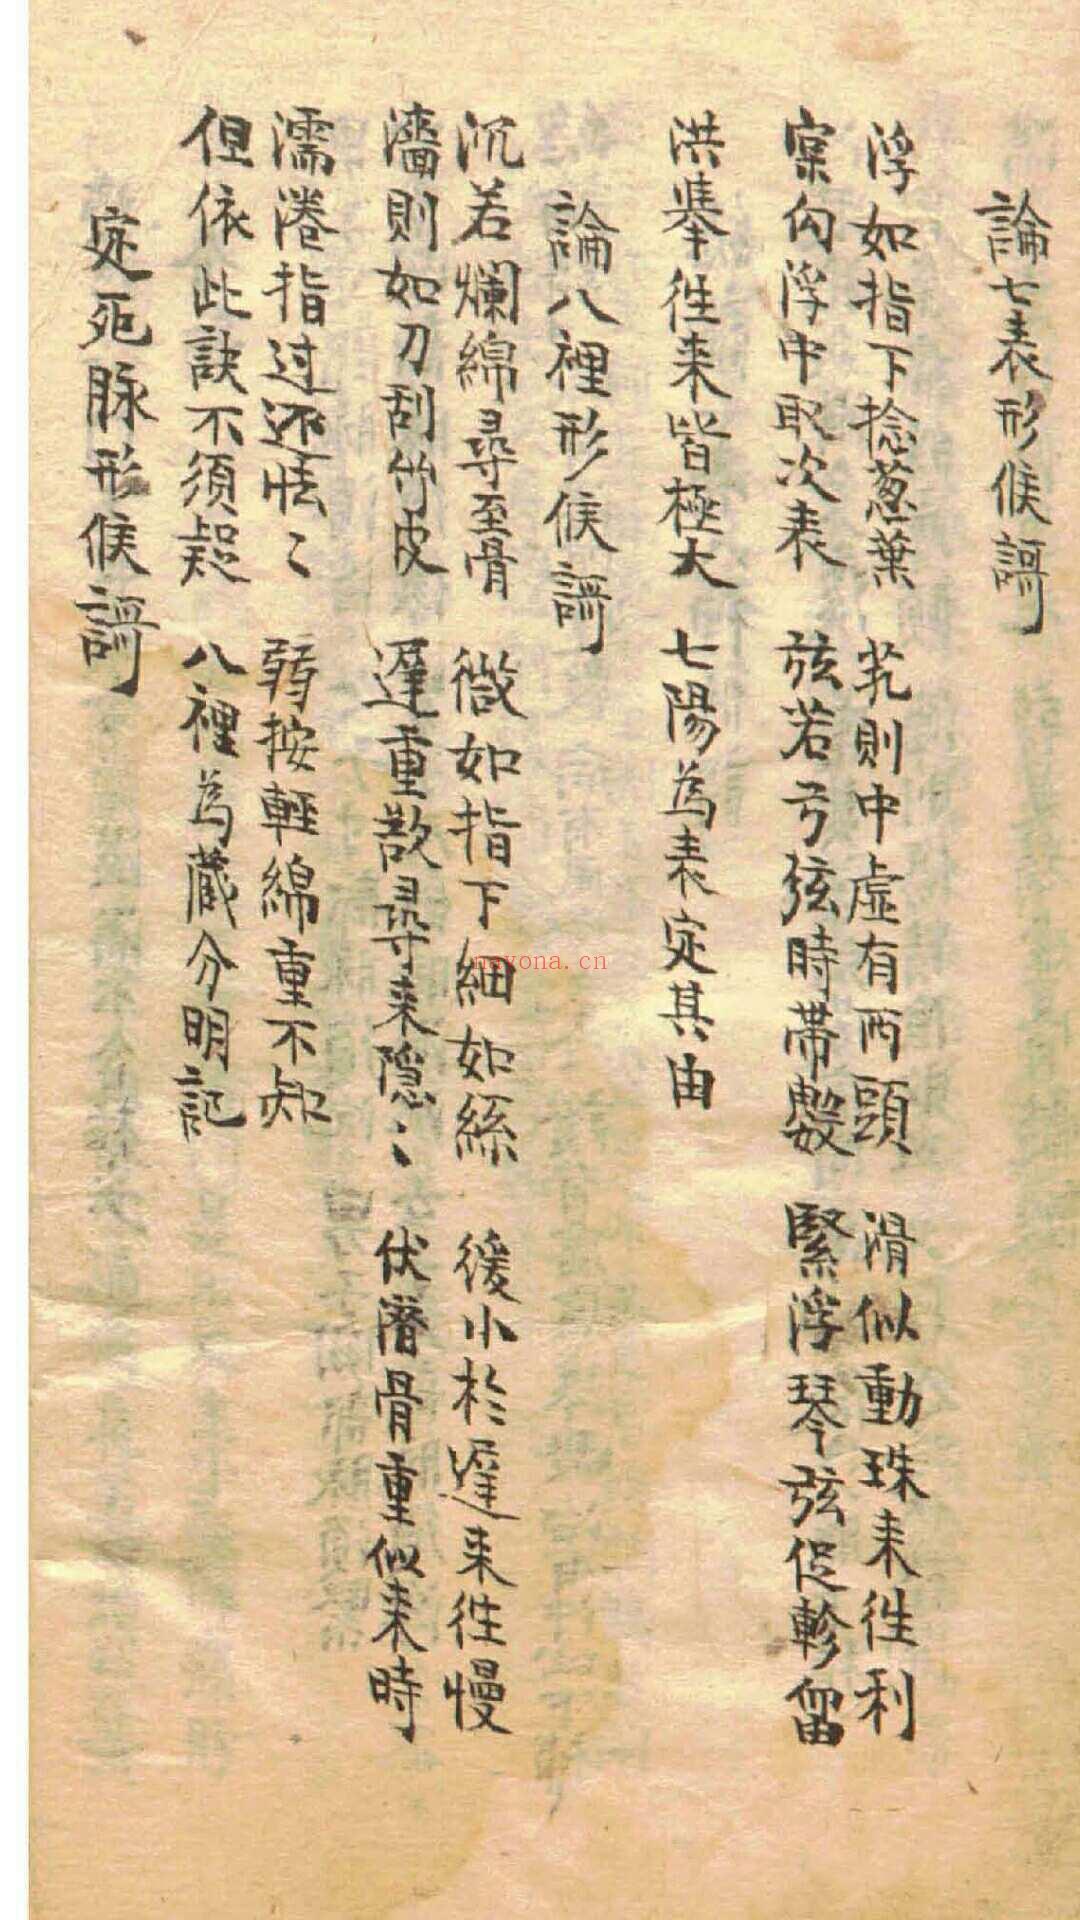 論七表形候謌
浮如指下捻葱葉 芤則中虛有兩頭 滑似動珠來徃利
宲向浮中取次表 弦若弓弦時帶數 緊浮琴弦促軫留
洪舉徃来皆極大 七陽為表定其由
論八裡形候謌
沉若爛綿尋至骨 微如指下細如絲 緩小於遲来徃慢
濇則如刀刮竹皮 遲重散尋来隠〻 伏潛骨重似来時
濡港指过还怯〻 弱按輕綿重不知
但依此訣不須疑 八裡為藏分明記
定死脉形候謌
nayona.cn